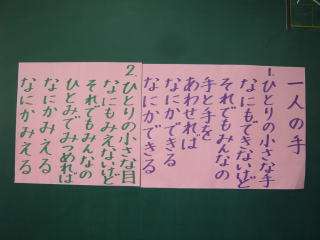 一人の手
1.ひとりの小さな手
なにもできないけど
それでもみんなの
手と手を
あわせれば
なにかできる
なにかできる
2.ひとりの小さな目
なにもみえないけど
それでもみんなの
ひとみでみつめれば
なにかみえる
なにかみえる